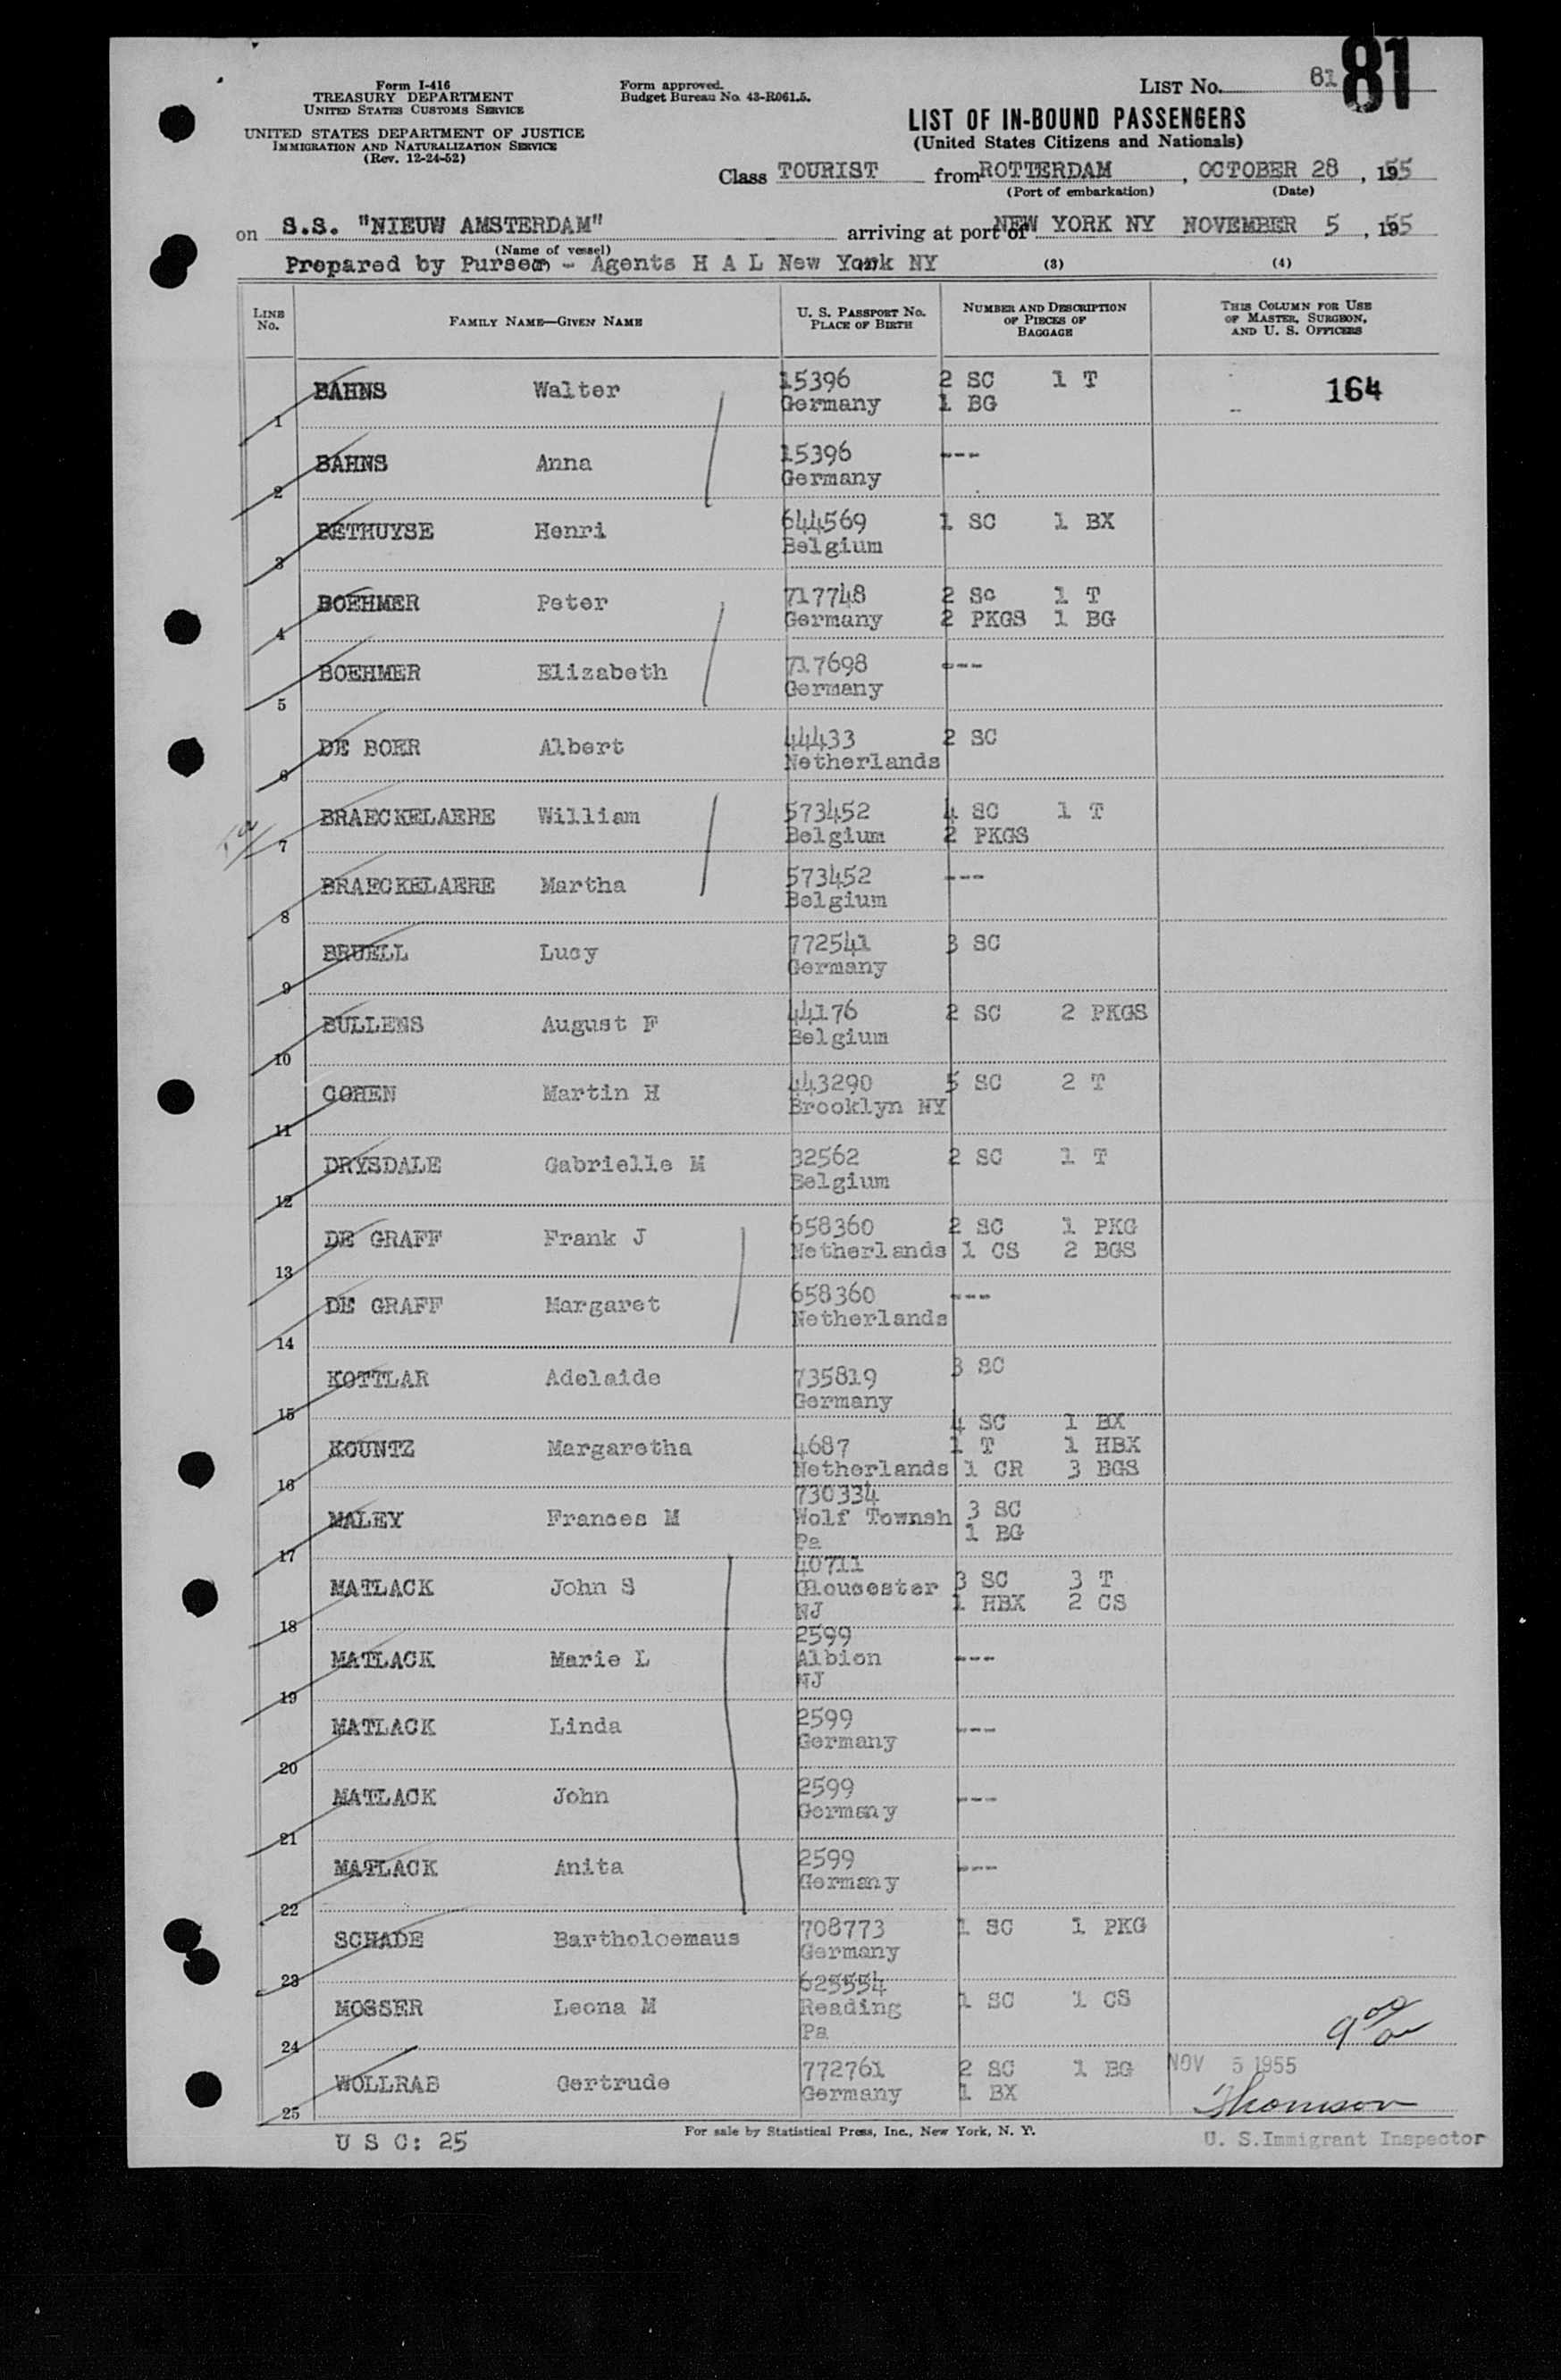 81
List No. 81
Form I-416
TREASURY DEPARTMENT
United States Customs Service
UNITED STATES DEPARTMENT OF JUSTICE
Immigration and Naturalization Service
(Rev. 12-24-52)
Form approved.
Budget Bureau No. 43-R061.5.
LIST OF IN-BOUND PASSENGERS
(United States Citizens and Nationals)
Class TOURIST from ROTTERDAM, OCTOBER 28, 1955
(Port of embarkation) (Date)
on S.S. "NIEUW AMSTERDAM" arriving at port of NEW YORK NY NOVEMBER 5, 1955
(Name of vessel)
Prepared by Purser - Agents H A L New York NY (3) (4)
Line No. Family Name—Given Name U. S. Passport No. Place of Birth Number and Description of Pieces of Baggage This Column for Use of Master, Surgeon, and U. S. Officers
1 BAHNS Walter 15396 Germany 2 SC 1 T 1 BG 164
2 BAHNS Anna 15396 Germany ---
3 BETHUYSE Henri 644569 Belgium 1 SC 1 BX
4 BOEHMER Peter 717748 Germany 2 SC 1 T 2 PKGS 1 BG
5 BOEHMER Elizabeth 717698 Germany ---
6 DE BOER Albert 44433 Netherlands 2 SC
7 BRAECKELAERE William 573452 Belgium 4 SC 1 T 2 PKGS
8 BRAECKELAERE Martha 573452 Belgium ---
9 BRUELL Lucy 772541 Germany 3 SC
10 BULLENS August F 44176 Belgium 2 SC 2 PKGS
11 COHEN Martin H 443290 Brooklyn NY 5 SC 2 T
12 DRYSDALE Gabrielle M 32562 Belgium 2 SC 1 T
13 DE GRAFF Frank J 658360 Netherlands 2 SC 1 PKG 1 CS 2 BGS
14 DE GRAFF Margaret 658360 Netherlands ---
15 KOTTLAR Adelaide 735819 Germany 3 SC
16 KOUNTZ Margaretha 4687 Netherlands 4 SC 1 BX 1 T 1 HBX 1 CR 3 BGS
17 MALEY Frances M 730334 Wolf Townsh Pa 3 SC 1 BG
18 MATLACK John S 40711 Gloucester NJ 3 SC 3 T 1 HBX 2 CS
19 MATLACK Marie L 2599 Albion NJ ---
20 MATLACK Linda 2599 Germany ---
21 MATLACK John 2599 Germany ---
22 MATLACK Anita 2599 Germany ---
23 SCHADE Bartholoemaus 708773 Germany 1 SC 1 PKG
24 MOSSER Leona M 625554 Reading Pa 1 SC 1 CS
25 WOLLRAB Gertrude 772761 Germany 2 SC 1 BG 1 BX
NOV 5 1955
Thomson
U S C: 25 For sale by Statistical Press, Inc., New York, N. Y. U. S. Immigrant Inspector